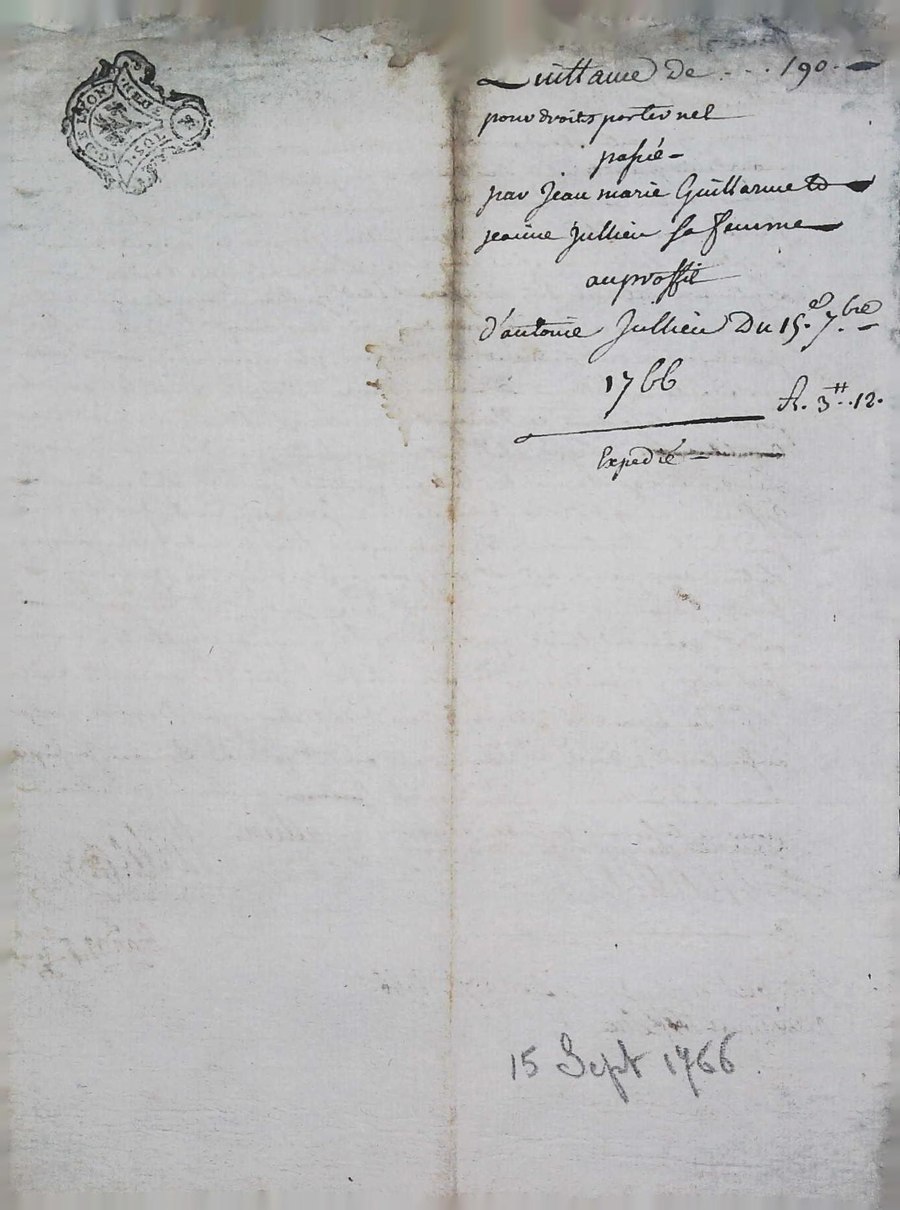 G. DE LYON
1. SOL
Quittance de ... 190.
pour droits porter nel
passé
par Jean marie Guillarme et
jeanne Jullien sa femme
au proffit
d'antoine Jullien Du 15.e 7.bre
1766
R. 3.tt. 12.
Expedié
15 Sept 1766